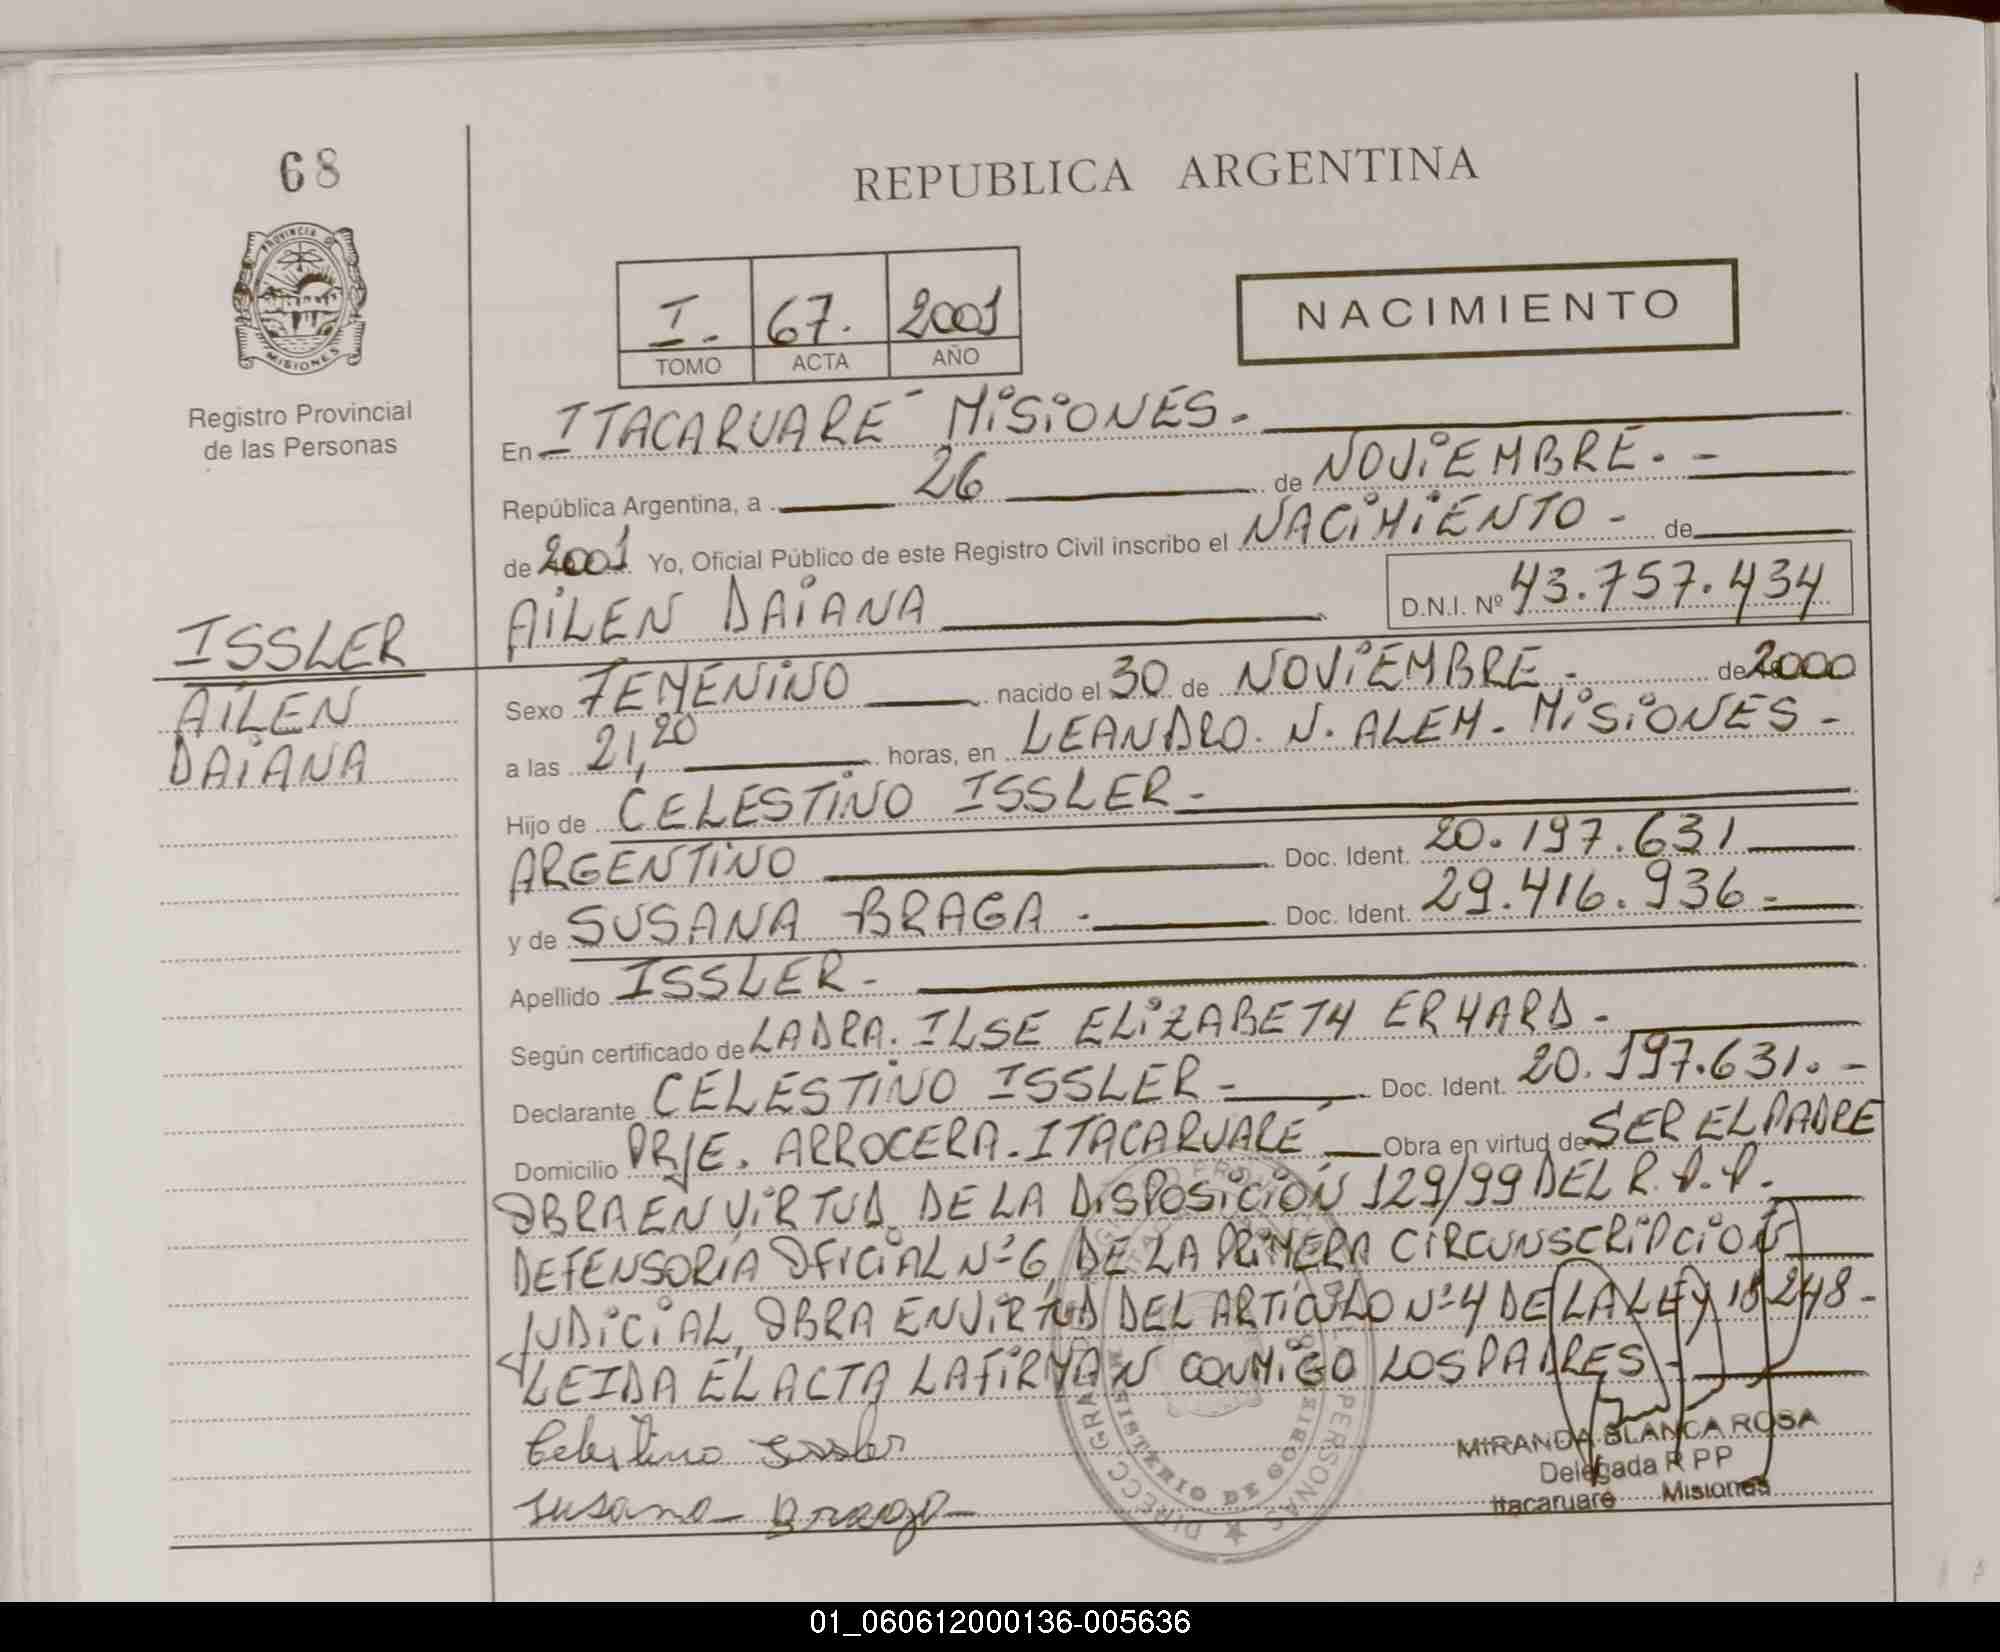 68
REPUBLICA ARGENTINA
PROVINCIA DE
MISIONES
Registro Provincial
de las Personas
I. 67. 2001
TOMO ACTA AÑO
NACIMIENTO
En ITACARUARÉ MISIONES.
República Argentina, a 26 de NOVIEMBRE. -
de 2001 Yo, Oficial Público de este Registro Civil inscribo el NACIMIENTO - de
AILEN DAIANA D.N.I. Nº 43.757.434
ISSLER
AILEN
DAIANA
Sexo FEMENINO nacido el 30 de NOVIEMBRE. de 2000
a las 21,20 horas, en LEANDRO. N. ALEM. MISIONES -
Hijo de CELESTINO ISSLER -
ARGENTINO Doc. Ident. 20.197.631
y de SUSANA BRAGA - Doc. Ident. 29.416.936 -
Apellido ISSLER -
Según certificado de LA DRA. ILSE ELIZABETH ERHARD -
Declarante CELESTINO ISSLER - Doc. Ident. 20.197.631. -
Domicilio PRJE. ARROCERA. ITACARUARÉ Obra en virtud de SER EL PADRE
OBRA EN VIRTUD DE LA DISPOSICIÓN 129/99 DEL R.P.P.
DEFENSORIA OFICIAL Nº 6, DE LA PRIMERA CIRCUNSCRIPCION
JUDICIAL, OBRA EN VIRTUD DEL ARTÍCULO Nº 4 DE LA LEY 18248 -
LEIDA EL ACTA LA FIRMAN CONMIGO LOS PADRES -
Celestino Issler
Susana Braga
MIRANDA BLANCA ROSA
Delegada R P P
Itacaruaré Misiones
MINISTERIO DE GOBIE
PERSONAS
01_060612000136-005636